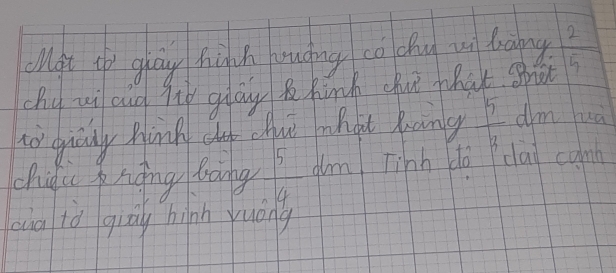 Một tờ giấy hình vuông có chu vi bằng 2/5
chu vi của tờ giấy hình chữ nhật. Biết
tờ giấy hình chữ nhật bằng 5/3 dm và
chiều rộng bằng 5/4 dm. Tính độ dài cạnh
của tờ giấy hình vuông